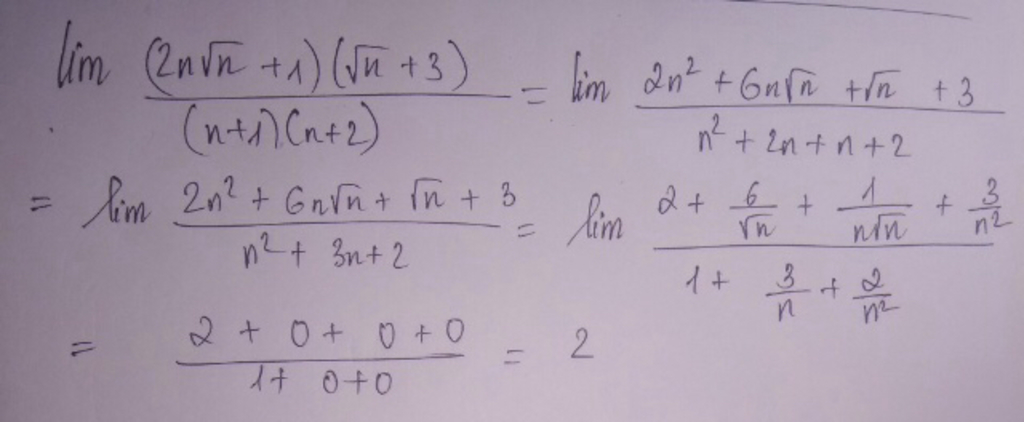 lim (2n√n + 1)(√n + 3) / (n+1)(n+2) = lim 2n² + 6n√n + √n + 3 / n² + 2n + n + 2
= lim 2n² + 6n√n + √n + 3 / n² + 3n + 2 = lim 2 + 6/√n + 1/n√n + 3/n² / 1 + 3/n + 2/n²
= 2 + 0 + 0 + 0 / 1 + 0 + 0 = 2